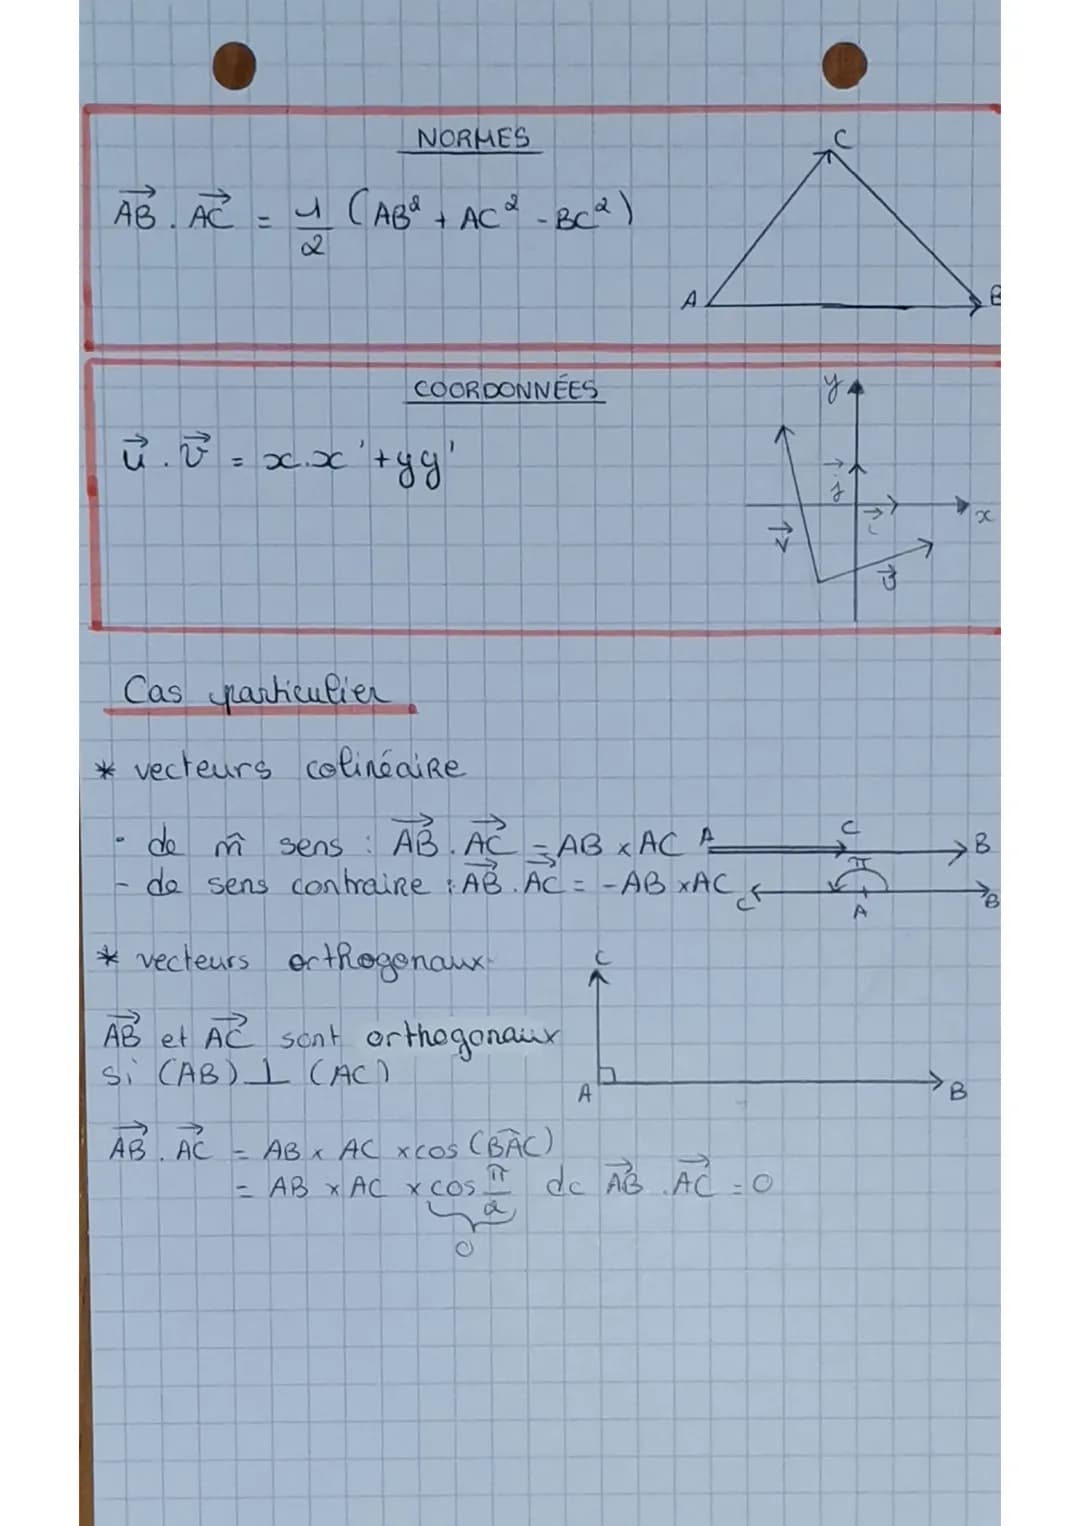 NORMES
C
$\overrightarrow{AB} . \overrightarrow{AC} = \frac{1}{2} (AB^2 + AC^2 - BC^2)$
A B
COORDONNÉES
y
$\vec{u} . \vec{v} = x.x' + yy'$
$\vec{j}$
$\vec{i}$ x
$\vec{v}$
$\vec{u}$
Cas particulier
* vecteurs colinéaire
- de m̂ sens : $\overrightarrow{AB} . \overrightarrow{AC} = AB \times AC$ A C B
- de sens contraire : $\overrightarrow{AB} . \overrightarrow{AC} = -AB \times AC$ C π A B
* vecteurs orthogonaux
C
$\overrightarrow{AB}$ et $\overrightarrow{AC}$ sont orthogonaux
si (AB) ⊥ (AC)
A B
$\overrightarrow{AB} . \overrightarrow{AC} = AB \times AC \times \cos(\widehat{BAC})$
$= AB \times AC \times \cos \frac{\pi}{2}$ dc $\overrightarrow{AB} . \overrightarrow{AC} = 0$
0